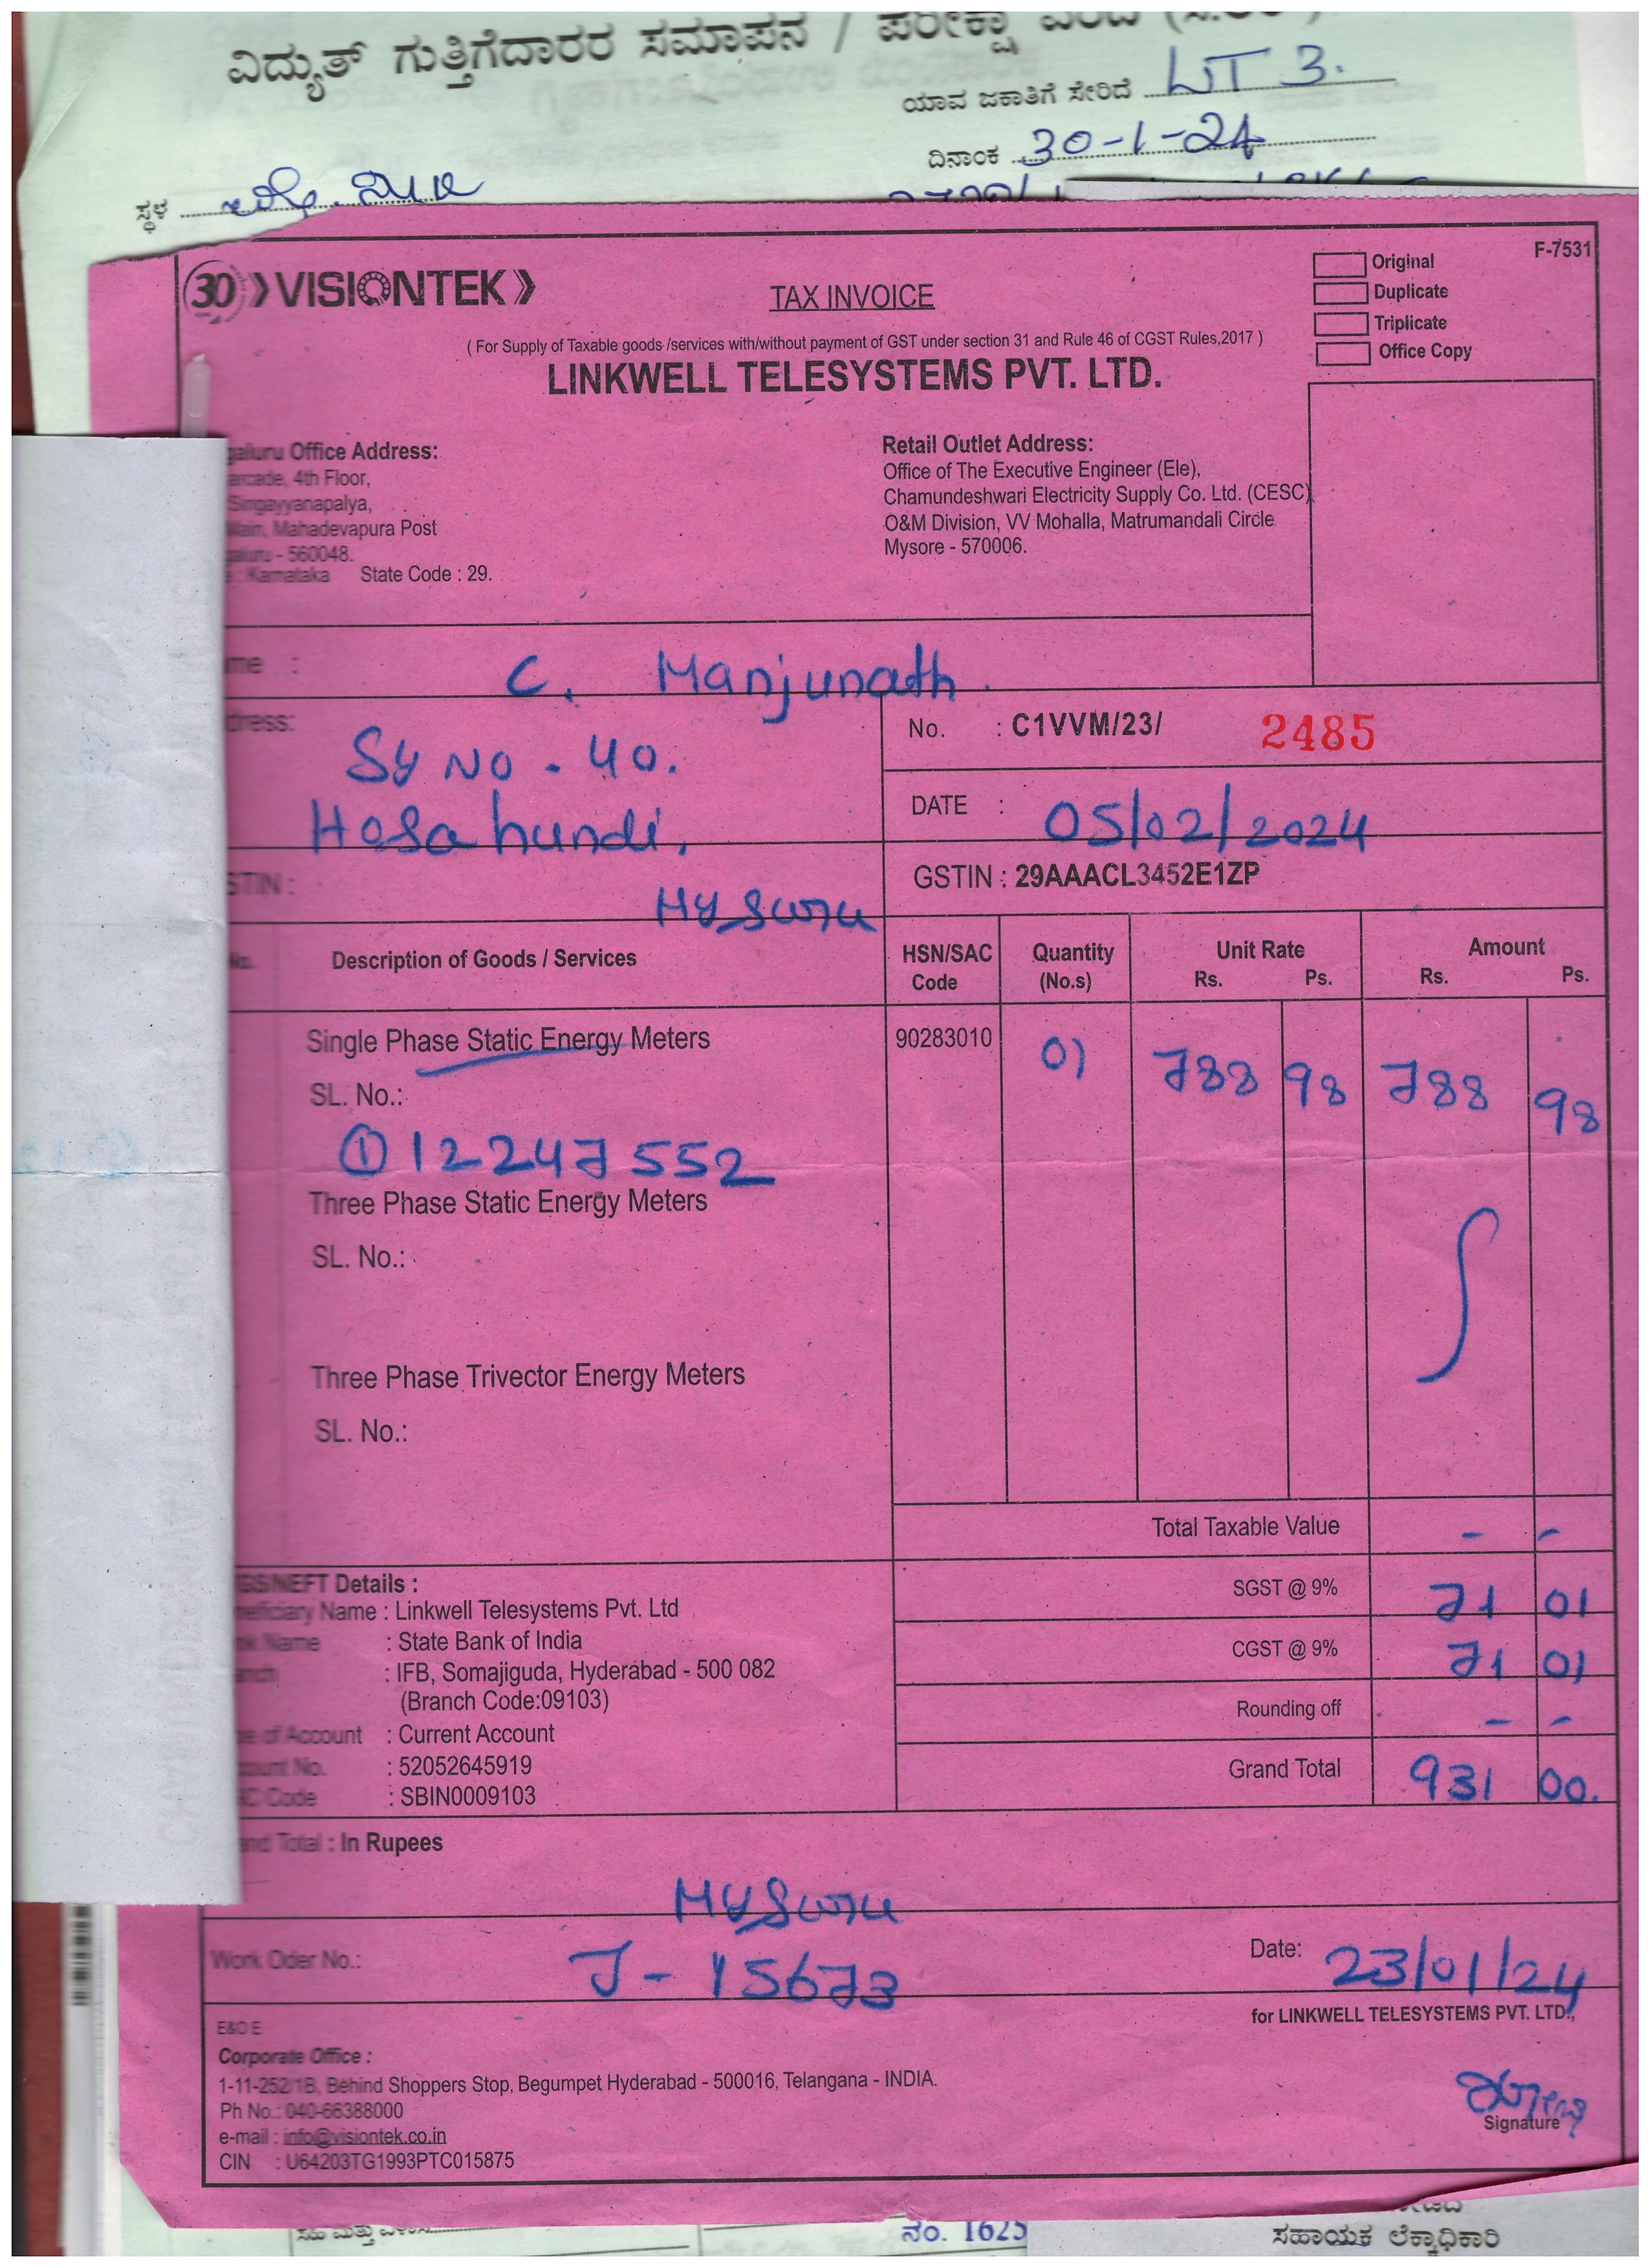 ವಿದ್ಯುತ್ ಗುತ್ತಿಗೆದಾರರ ಸಮಾಪನ / ಪರೀಕ್ಷಾ
ಯಾವ ಜಕಾತಿಗೆ ಸೇರಿದೆ LT 3.
ದಿನಾಂಕ 30-1-24
ಸ್ಥಳ
F-7531
30 VISIONTEK
TAX INVOICE
Original
Duplicate
Triplicate
Office Copy
( For Supply of Taxable goods /services with/without payment of GST under section 31 and Rule 46 of CGST Rules,2017 )
LINKWELL TELESYSTEMS PVT. LTD.
galuru Office Address:
arcade, 4th Floor,
Singayyanapalya,
Main, Mahadevapura Post
galuru - 560048.
: Karnataka State Code : 29.
Retail Outlet Address:
Office of The Executive Engineer (Ele),
Chamundeshwari Electricity Supply Co. Ltd. (CESC)
O&M Division, VV Mohalla, Matrumandali Circle
Mysore - 570006.
me : C. Manjunath.
dress:
Sy NO - 40.
Hosahundi,
Mysuru
No. : C1VVM/23/ 2485
DATE : 05/02/2024
STIN :
GSTIN : 29AAACL3452E1ZP
No. Description of Goods / Services HSN/SAC Code Quantity (No.s) Unit Rate Rs. Ps. Amount Rs. Ps.
Single Phase Static Energy Meters 90283010 01 788 98 788 98
SL. No.:
① 12247552
Three Phase Static Energy Meters
SL. No.:
Three Phase Trivector Energy Meters
SL. No.:
Total Taxable Value - -
SGST @ 9% 71 01
CGST @ 9% 71 01
Rounding off - -
Grand Total 931 00.
GS/NEFT Details :
neficiary Name : Linkwell Telesystems Pvt. Ltd
nk Name : State Bank of India
anch : IFB, Somajiguda, Hyderabad - 500 082
(Branch Code:09103)
pe of Account : Current Account
count No. : 52052645919
SC Code : SBIN0009103
and Total : In Rupees
Mysuru
Work Oder No.: J - 15673
Date: 23/01/24
for LINKWELL TELESYSTEMS PVT. LTD.,
E&O E
Corporate Office :
1-11-252/1B, Behind Shoppers Stop, Begumpet Hyderabad - 500016, Telangana - INDIA.
Ph No.: 040-66388000
e-mail : info@visiontek.co.in
CIN : U64203TG1993PTC015875
Signature
ನಂ. 1625
ಸಹಾಯಕ ಲೆಕ್ಕಾಧಿಕಾರಿ